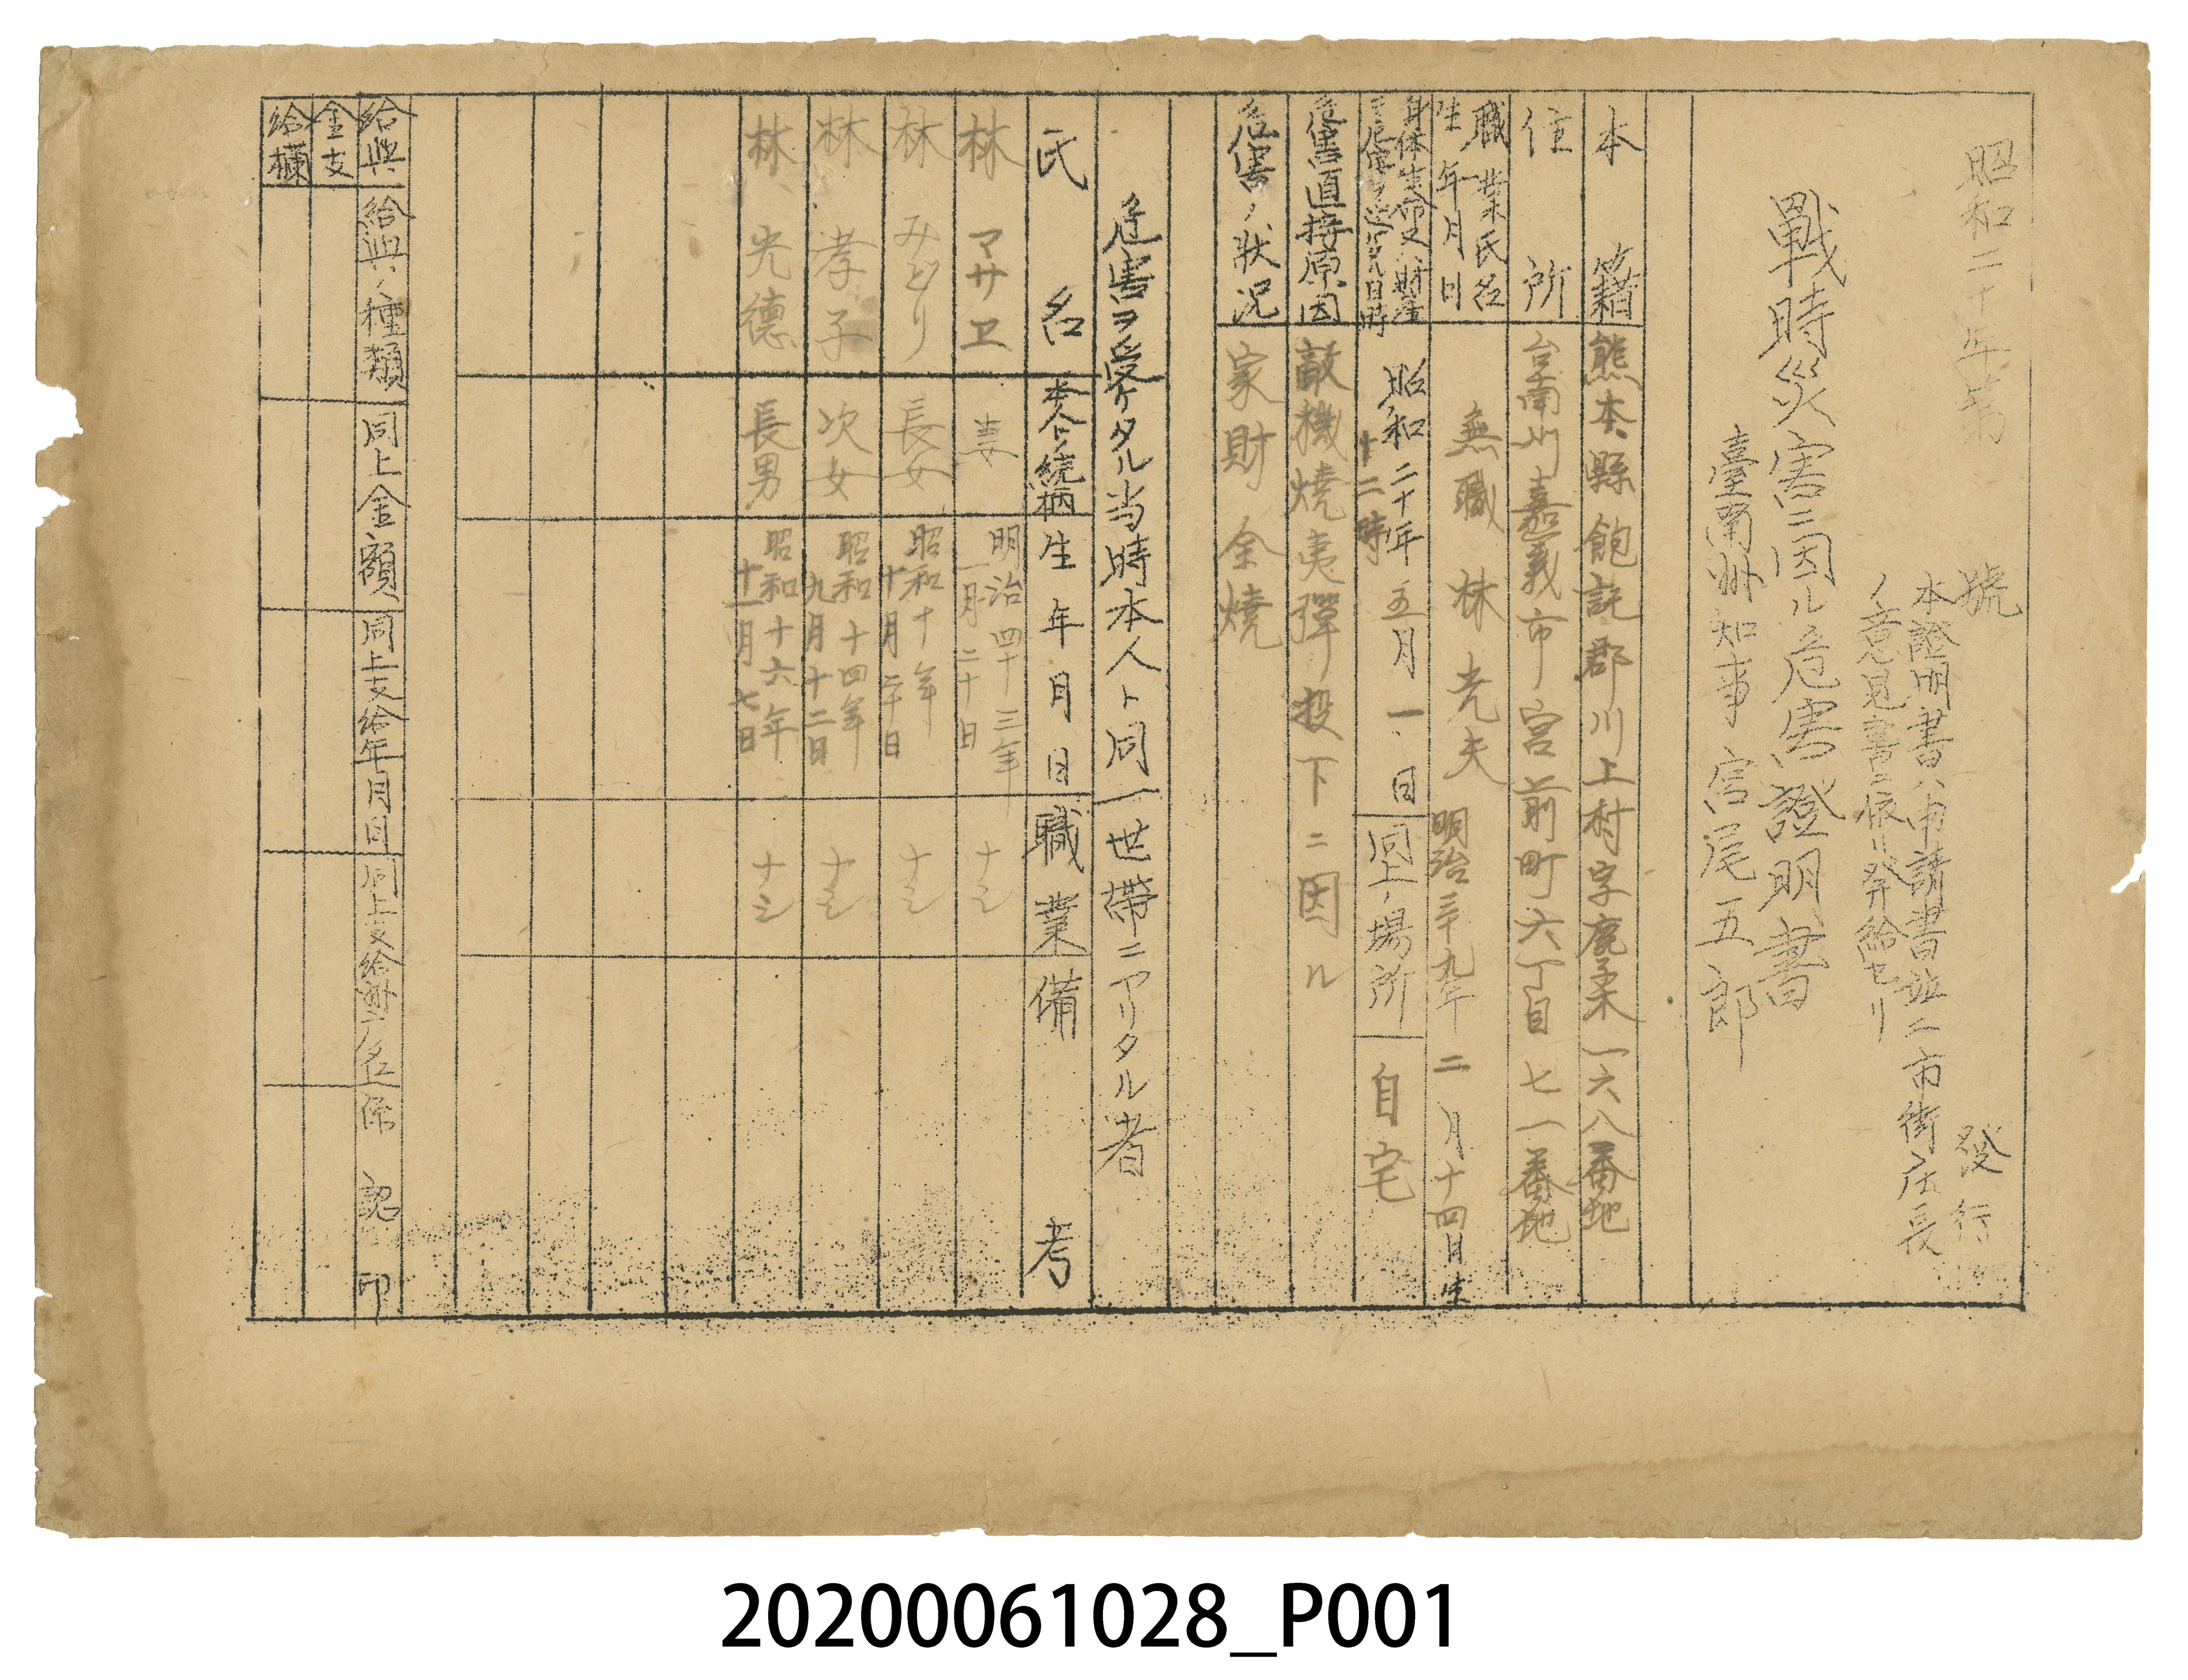 昭和二十年第　號　發行
本證明書ハ申請書並ニ市街庄長
ノ意見書ニ依リ発給セリ
戰時災害ニ因ル危害證明書
臺南州知事 宮尾五郎
本籍 熊本縣飽託郡川上村字鹿子木一六八番地
住所 台南州嘉義市宮前町六丁目七一番地
職業氏名
生年月日
無職 林光夫 明治三十九年二月十四日生
身体生命又ハ財産
ニ危害ヲ受ケタル日時
昭和二十年五月一日
十二時
同上ノ場所 自宅
危害直接原因 敵機燒夷彈投下ニ因ル
危害ノ狀况 家財全燒
危害ヲ受ケタル当時本人ト同一世帶ニアリタル者
氏名 本人トノ続柄 生年月日 職業 備考
林マサエ 妻 明治四十三年一月二十日 ナシ
林みどり 長女 昭和十年十月二十日 ナシ
林孝子 次女 昭和十四年九月十二日 ナシ
林光德 長男 昭和十六年十一月七日 ナシ
給與金支給欄
給與ノ種類 同上金額 同上支給年月日 同上支給州庁名 係認印
20200061028_P001